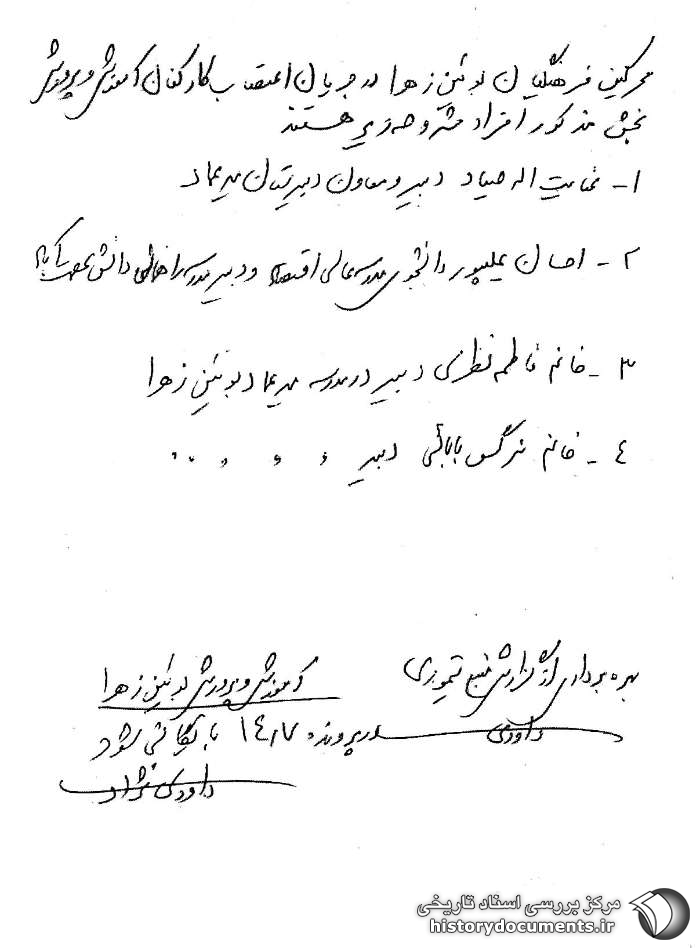 محرکین فرهنگیان بوئین زهرا در جریان اعتصاب کارکنان آموزش و پرورش
بخش مذکور افراد مشروحه زیر هستند
۱- عنایت اله صیاد دبیر و معاون دبیرستان میرعماد
۲- احسان دانشجوی مدرسه عالی اقتصاد و دبیر مدرسه راهنمائی دانش
۳- خانم فاطمه نظری دبیر در مدرسه میرعماد بوئین زهرا
٤- خانم نرگس بابائی دبیر ״ ״ ״ ״
بهره برداری از گزارش منبع تیموری
داودی
آموزش و پرورش بوئین زهرا
در پرونده ۱٤۰۷ بایگانی شود
داودی نژاد
مرکز بررسی اسناد تاریخی
historydocuments.ir